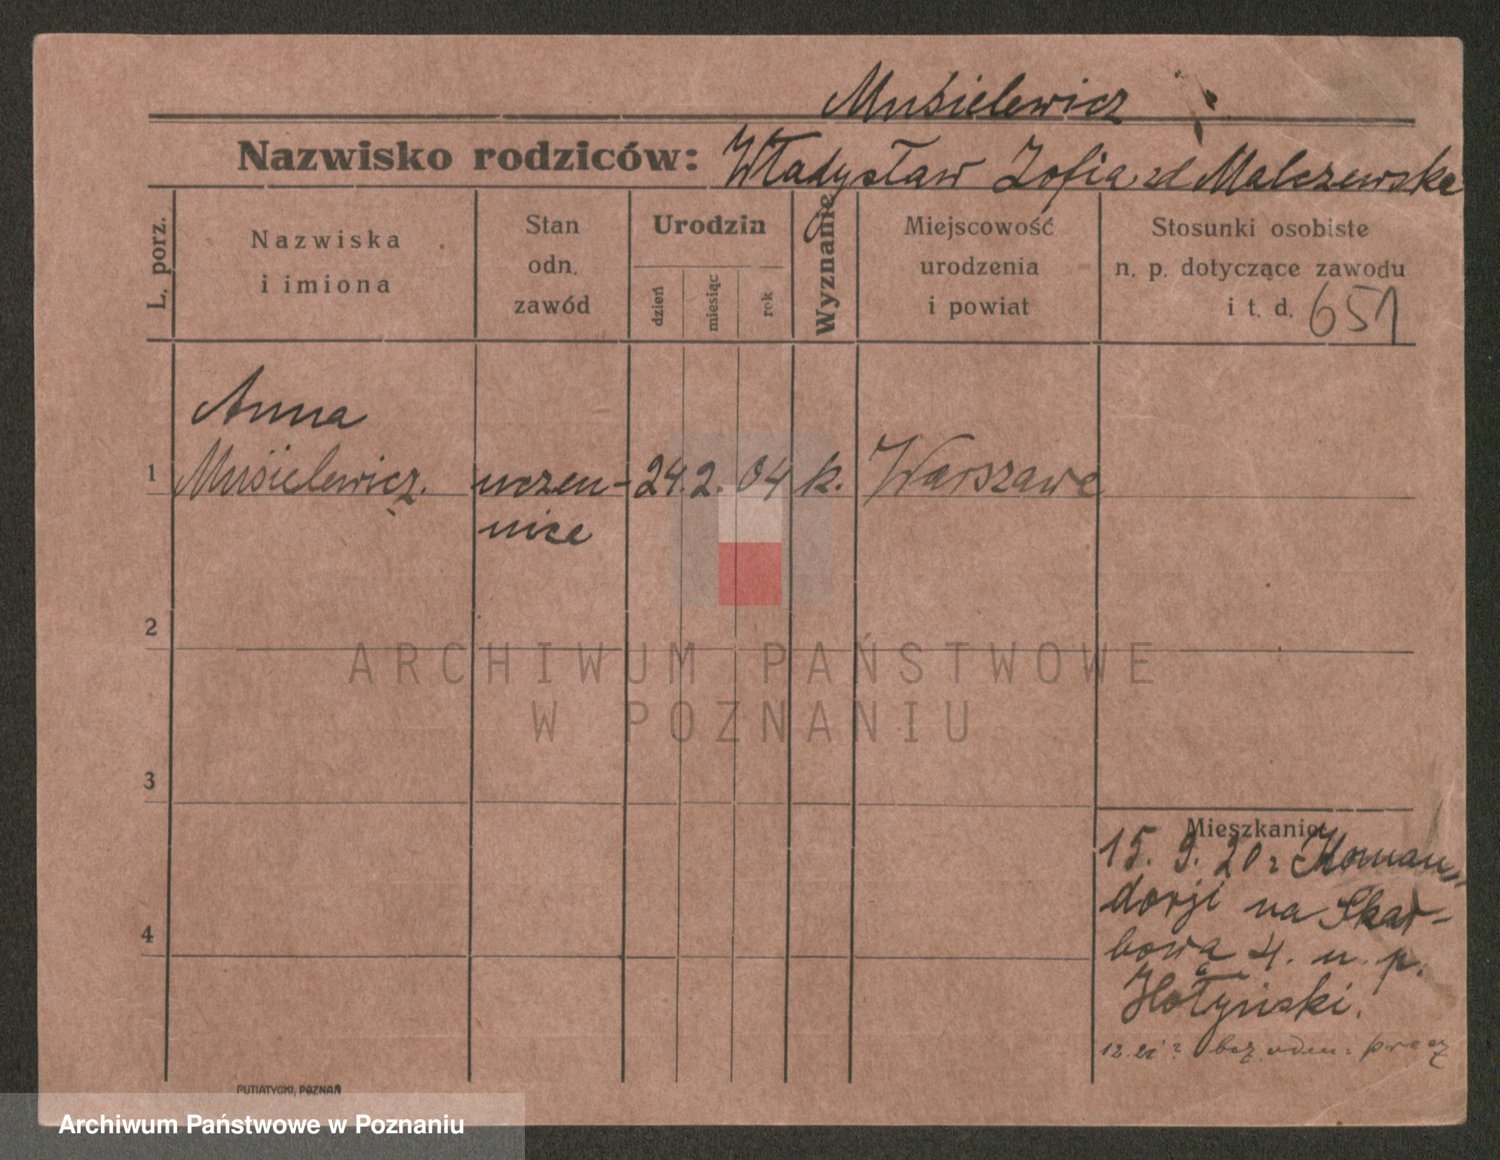 Musielewicz
Nazwisko rodziców: Władysław Zofia zd Malczewska
L. porz.
Nazwiska
i imiona
Stan
odn.
zawód
Urodzin
dzień
miesiąc
rok
Wyznanie
Miejscowość
urodzenia
i powiat
Stosunki osobiste
n. p. dotyczące zawodu
i t. d. 651
Anna
1 Musielewicz. uczen- 24. 2. 04 k. Warszawa
nica
2
ARCHIWUM PAŃSTWOWE
W POZNANIU
3
Mieszkanie
15. 9. 20 z Koman-
dorji na Skar-
4
bową 4. u p.
Hołyński.
bez odm. pracy
PUTIATYCKI, POZNAŃ
Archiwum Państwowe w Poznaniu